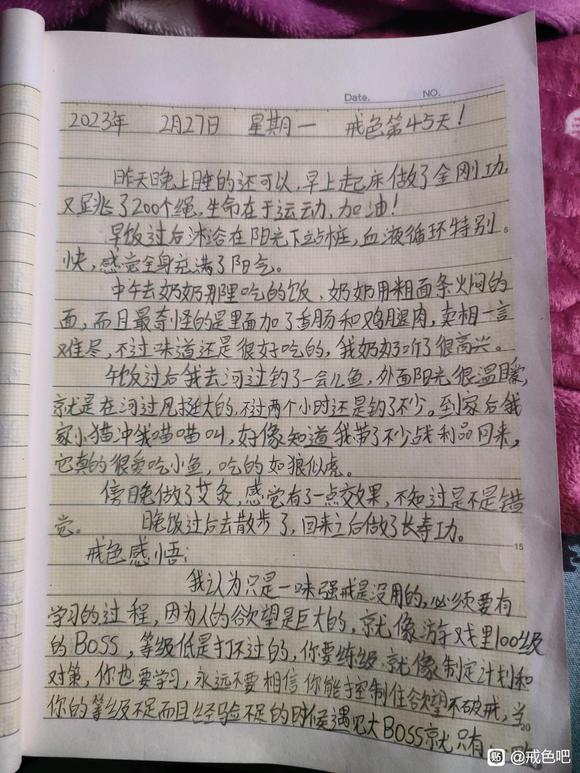 Date. NO.
2023年 2月27日 星期一 戒色第45天!
昨天晚上睡的还可以,早上起床做了金刚功,
又是跳了200个绳,生命在于运动,加油!
早饭过后沐浴在阳光下站桩,血液循环特别
快,感觉全身充满了阳气。
中午去奶奶那里吃的饭,奶奶用粗面条火焖的
面,而且最奇怪的是里面加了香肠和鸡腿肉,卖相一言
难尽,不过味道还是很好吃的,我奶奶听了很高兴。
午饭过后我去河边钓了一会儿鱼,外面阳光很温暖,
就是在河边风挺大的,不过两个小时还是钓了不少。到家后我
家小猫冲我喵喵叫,好像知道我带了不少战利品回来,
它真的很爱吃小鱼,吃的如狼似虎。
傍晚做了艾灸,感觉有了一点效果,不知过是不是错
觉。 晚饭过后去散步了,回来之后做了长寿功。
15
戒色感悟:
我认为只是一味强戒是没用的,必须要有
学习的过程,因为人的欲望是巨大的,就像游戏里100级
的BOSS,等级低是打不过的,你要练级,就像制定计划和
对策,你也要学习,永远不要相信你能控制住欲望不破戒,当
20
你的等级不足而且经验不足的时候遇见大BOSS就只有
贴 @戒色吧